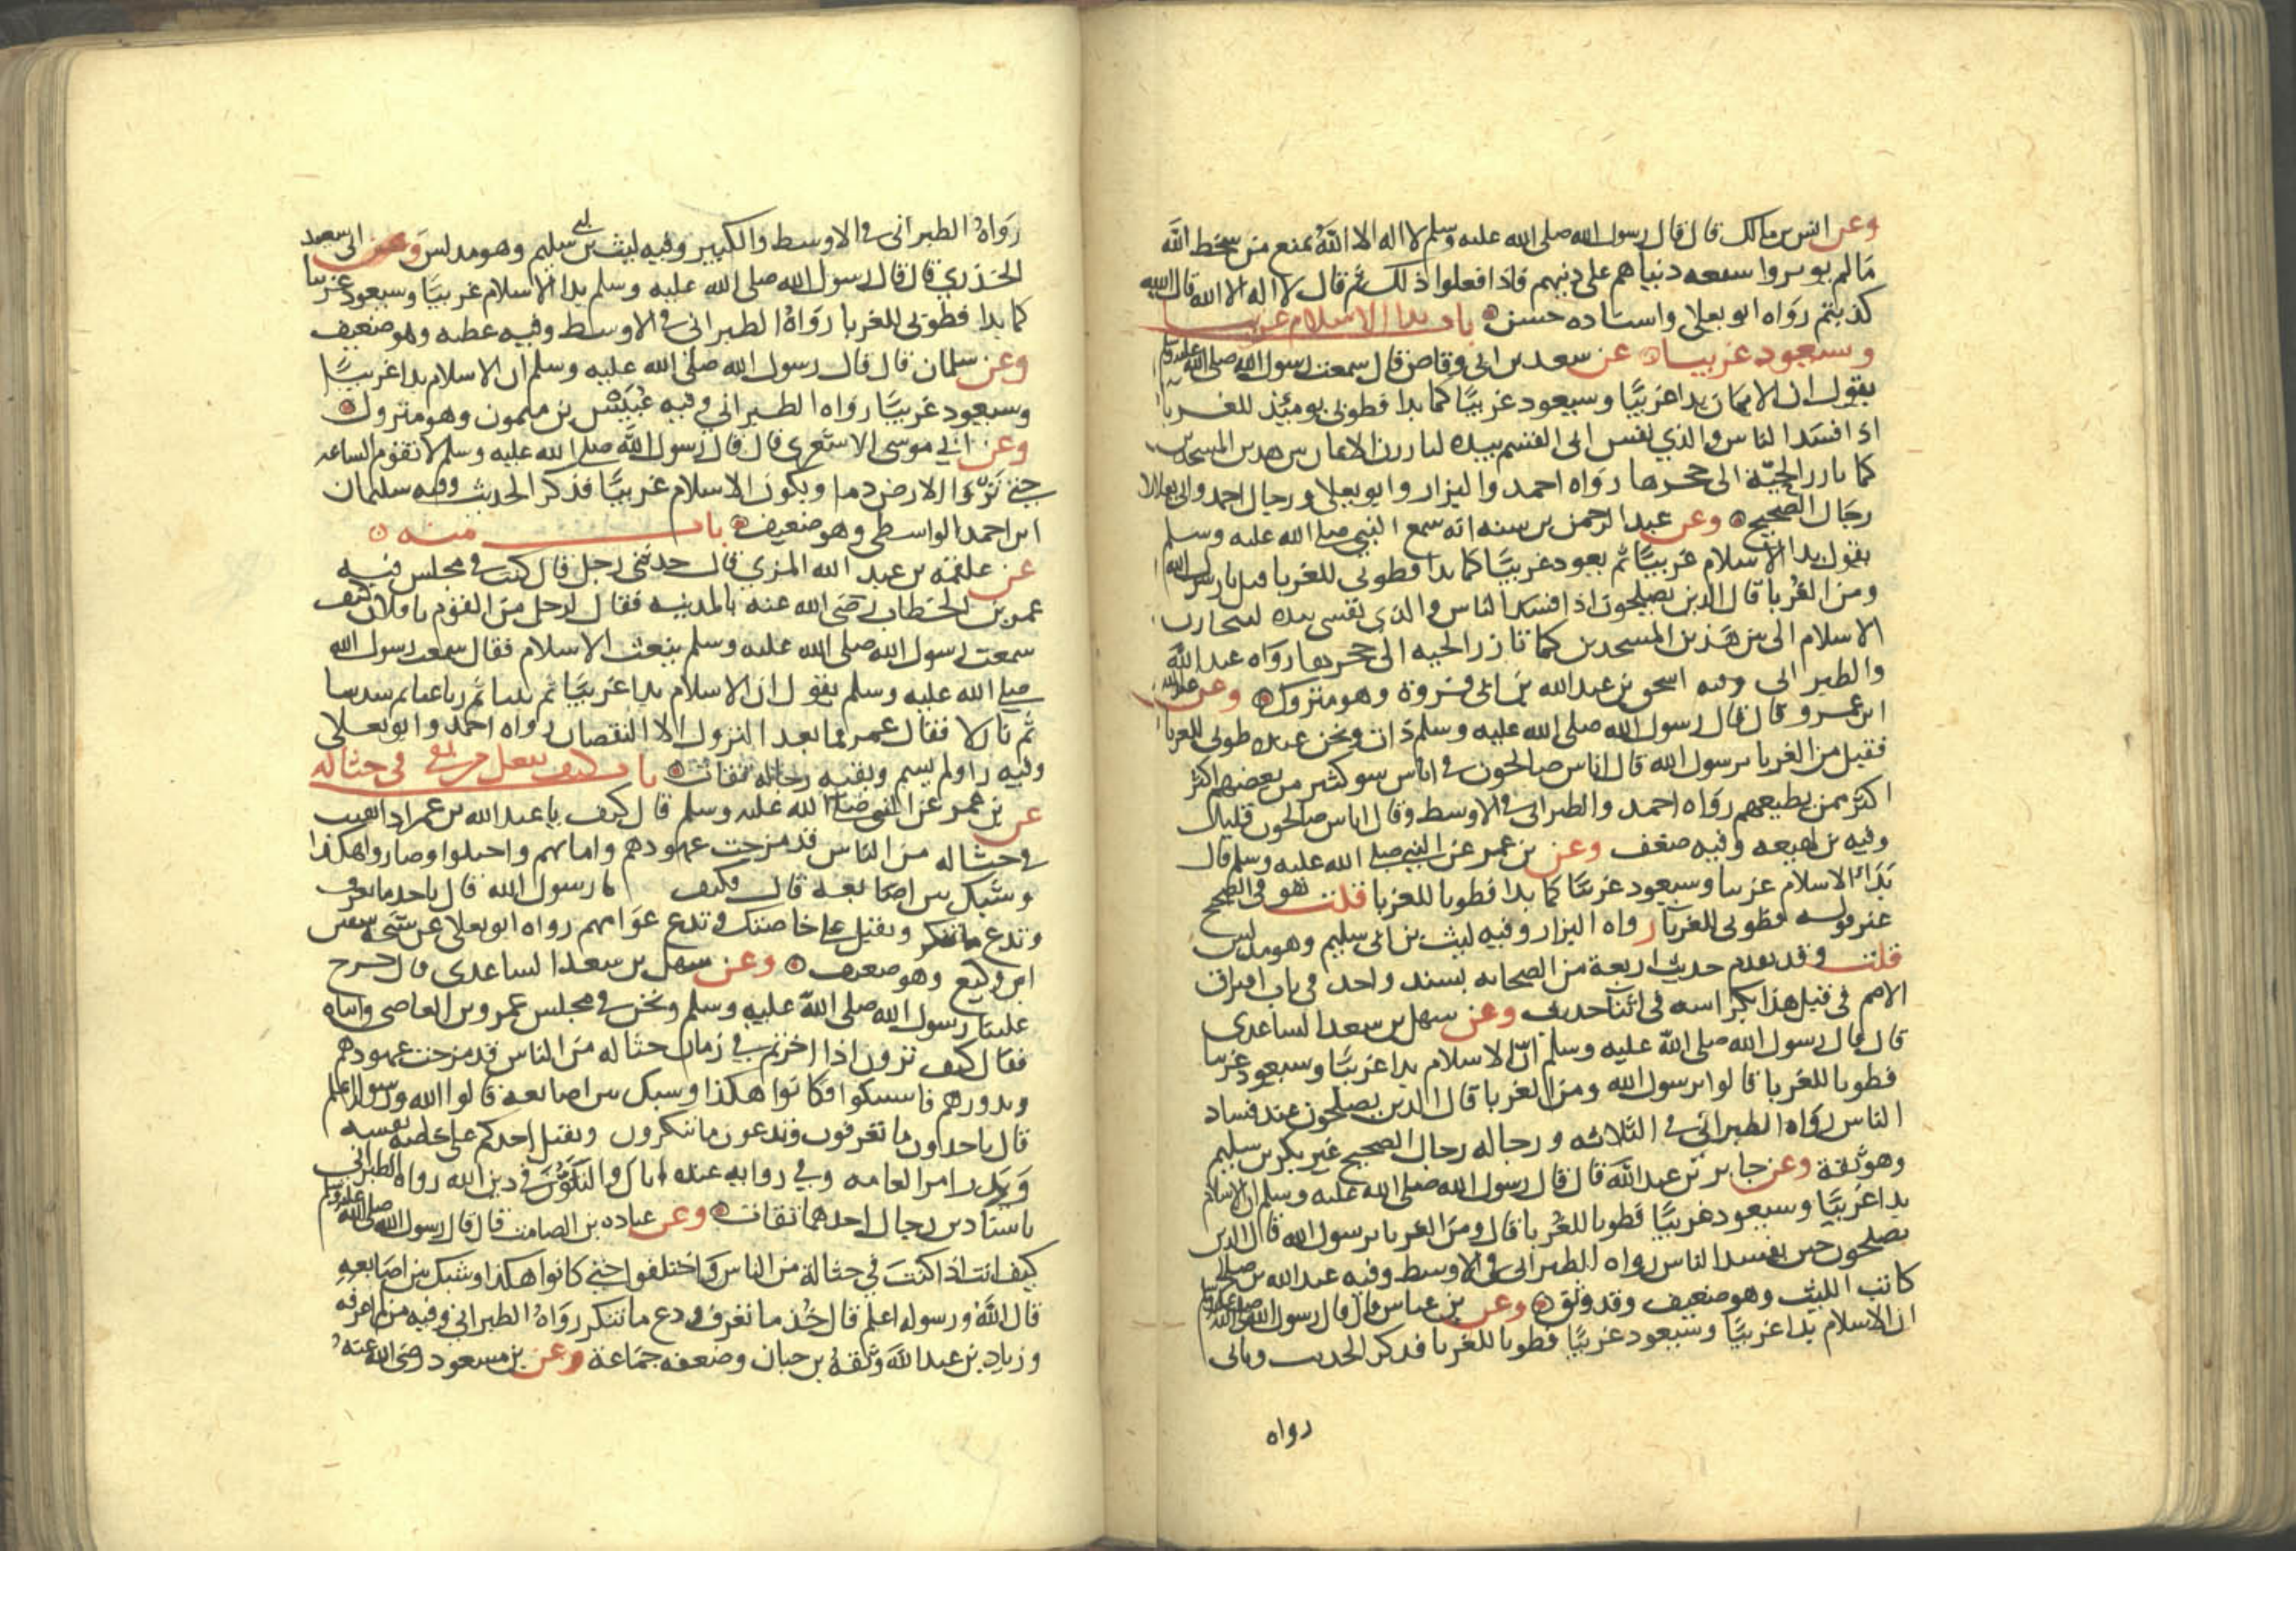 وعن انس بن مالك قال قال رسول الله صلى الله عليه وسلم لا اله الا الله تمنع من سخط الله
ما لم يوثروا سفعه دنياهم على دينهم فاذا فعلوا ذلك ثم قال لا اله الا الله قال الله
كذبتم رواه ابو يعلى واسناده حسن باب بدا الاسلام غريبا
وسيعود غريبا عن سعد بن ابى وقاص قال سمعت رسول الله صلى الله عليه وسلم
يقول ان الايمان بدا غريبًا وسيعود غريبًا كما بدا فطوبى يومئذ للغربا
اذا فسد الناس والذي نفس ابى القسم بيده ليارزن الايمان بين هذين المسجدين
كما يارز الحيّة الى جحرها رواه احمد والبزار وابو يعلى ورجال احمد وابى يعلى
رجال الصحيح وعن عبد الرحمن بن سنه انه سمع النبي صلى الله عليه وسلم
يقول بدا الاسلام غريبًا ثم يعود غريبًا كما بدا فطوبى للغربا قيل يا رسول الله
ومن الغربا قال الذين يصلحون اذا فسد الناس والذي نفسى بيده
الاسلام الى بين هذين المسجدين كما تارز الحيه الى جحرها رواه عبد الله
والطبرانى وفيه اسحق بن عبد الله بن ابى فروة وهو متروك وعن عبد الله
ابن عمرو قال قال رسول الله صلى الله عليه وسلم ذات ونحن عنده طوبى للغربا
فقيل من الغربا يرسول الله قال اناس صالحون في اناس سو كثير من بعضهم اكثر
اكثر ممن يطيعهم رواه احمد والطبرانى في الاوسط وقال اناس صالحون قليل
وفيه بن لهيعه وفيه ضعف وعن بن عمر عن النبي صلى الله عليه وسلم قال
بدا الاسلام غريبا وسيعود غريبًا كما بدا فطوبا للغربا قلت هو في الصحيح
غير قوله فطوبى للغربا رواه البزار وفيه ليث بن ابى سليم وهو مدلس
قلت وقد تقدم حديث اربعة من الصحابه بسند واحد في باب افتراق
الامم في قبل هذا بكراسه في اثنا حديث وعن سهل بن سعد الساعدى
قال قال رسول الله صلى الله عليه وسلم ان الاسلام بدا غريبًا وسيعود غريبا
فطوبا للغربا قالوا يرسول الله ومن الغربا قال الذين يصلحون عند فساد
الناس رواه الطبرانى في الثلاثه ورجاله رجال الصحيح غير بكر بن سليم
وهو ثقة وعن جابر بن عبد الله قال قال رسول الله صلى الله عليه وسلم ان الاسلام
بدا غريبًا وسيعود غريبًا فطوبا للغربا قال ومن الغربا يرسول الله قال الذين
يصلحون حين يفسد الناس رواه الطبرانى في الاوسط وفيه عبد الله بن صالح
كاتب الليث وهو ضعيف وقد وثق وعن بن عباس قال قال رسول الله صلى الله عليه وسلم
ان الاسلام بدا غريبًا وسيعود غريبًا فطوبا للغربا فذكر الحديث
رواه
رواه الطبرانى في الاوسط والكبير وفيه ليث بن ابى سليم وهو مدلس وعن ابى سعيد
الخدري قال قال رسول الله صلى الله عليه وسلم بدا الاسلام غريبًا وسيعود غريبا
كما بدا فطوبى للغربا رواه الطبرانى في الاوسط وفيه عطيه وهو ضعيف
وعن سلمان قال قال رسول الله صلى الله عليه وسلم ان الاسلام بدا غريبًا
وسيعود غريبًا رواه الطبراني وفيه عبيس بن ميمون وهو متروك
وعن ابي موسى الاشعرى قال قال رسول الله صلى الله عليه وسلم لا تقوم الساعه
حتى الارض دما ويكون الاسلام غريبًا فذكر الحديث وفيه سليمان
ابن احمد الواسطى وهو ضعيف باب منه
عن علقمة بن عبد الله المزنى قال حدثنى رجل قال كنت في مجلس فيه
عمر بن الخطاب رضى الله عنه بالمدينه فقال لرجل من القوم يا فلان كيف
سمعت رسول الله صلى الله عليه وسلم ينعت الاسلام فقال سمعت رسول الله
صلى الله عليه وسلم يقول ان الاسلام بدا غريبًا ثم ثنيا ثم رباعيا ثم سدسيا
ثم بازلا فقال عمر فما بعد البزول الا النقصان رواه احمد وابو يعلى
وفيه راو لم يسم وبقيه رجاله ثقات باب كيف يفعل من بقي في حثاله
عن بن عمر عن النبى صلى الله عليه وسلم قال كيف يا عبد الله بن عمر اذا بقيت
في حثاله من الناس قد مزجت عهودهم واماناتهم واختلفوا وصاروا هكذا
وشبك بين اصابعه قال فكيف يا رسول الله قال ياخذ ما تعرف
وتدع ما تنكر وتقبل على خاصتك وتدع عوامهم رواه ابو يعلى عن سفين
ابن وكيع وهو ضعيف وعن سهل بن سعد الساعدى قال خرج
علينا رسول الله صلى الله عليه وسلم ونحن في مجلس عمرو بن العاصى وابناه
فقال كيف ترون اذا اخرتم في زمان حثاله من الناس قد مزجت عهودهم
ونذورهم فاشتبكوا فكانوا هكذا وشبك بين اصابعه قالوا الله ورسوله اعلم
قال تاخذون ما تعرفون وتدعون ما تنكرون ويقبل احدكم على خاصة نفسه
ويذر امر العامه وفي روايه عنده اياك والتلون في دين الله رواه الطبرانى
باسنادين رجال احدهما ثقات وعن عباده بن الصامت قال قال رسول الله صلى الله عليه وسلم
كيف انت اذا كنت في حثالة من الناس واختلفوا حتى كانوا هكذا وشبك بين اصابعه
قال الله ورسوله اعلم قال خذ ما تعرف ودع ما تنكر رواه الطبرانى وفيه من لم اعرفه
وزياد بن عبد الله وثقه بن حبان وضعفه جماعة وعن بن مسعود رضى الله عنه